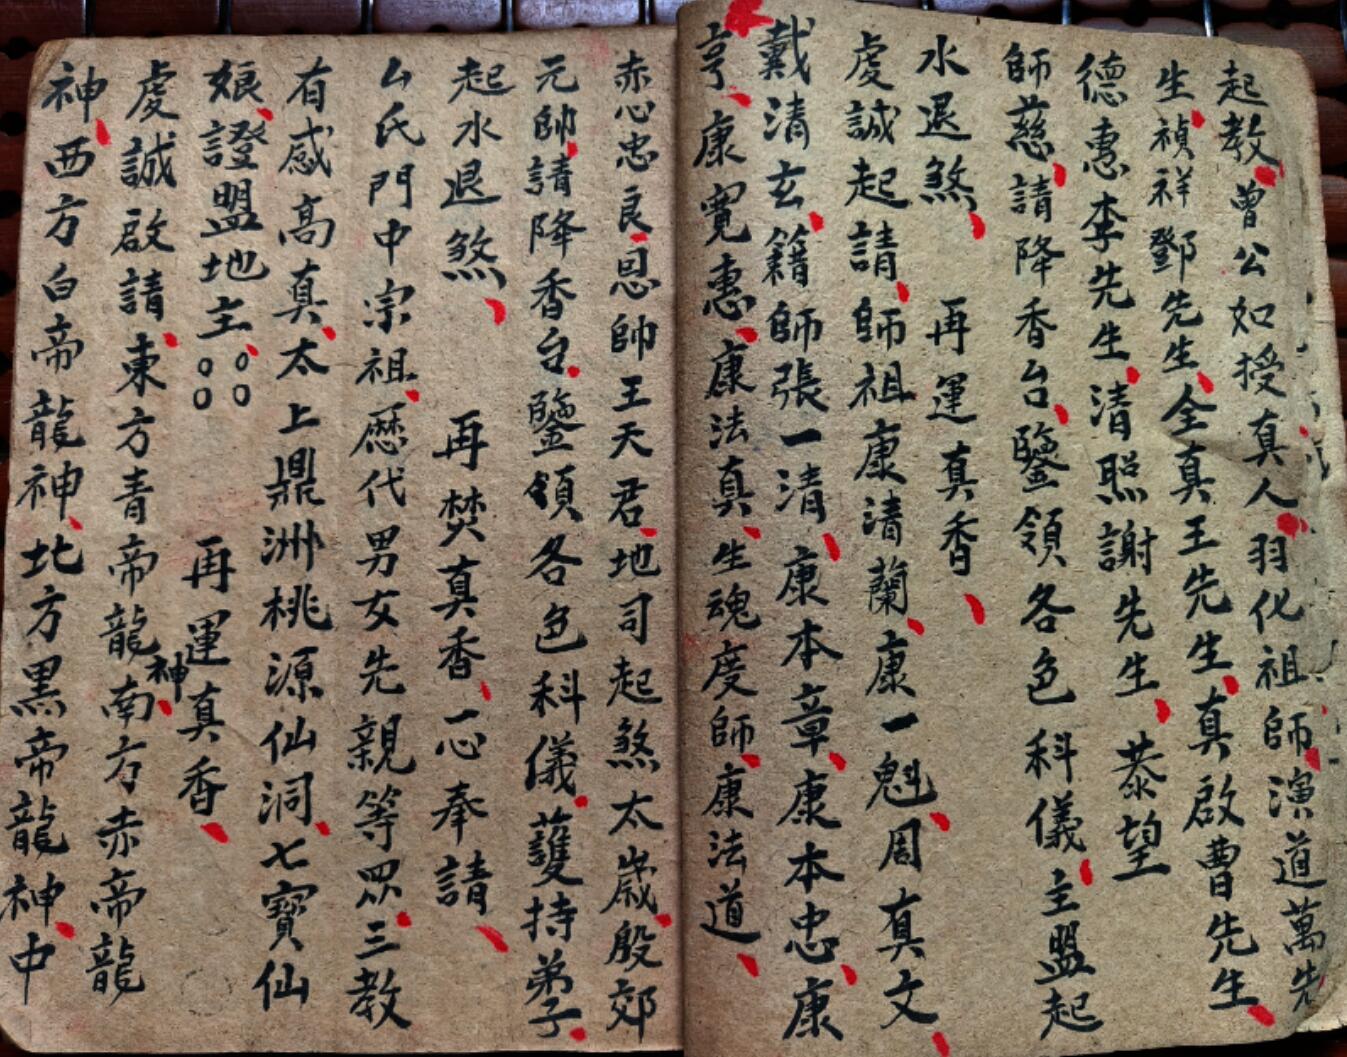 起教曾公如授真人羽化祖師演道萬先
生禎祥鄧先生全真王先生真啟曹先生
德惠李先生清照謝先生恭望
師慈請降香台鑒領各色科儀主盟起
水退煞 再運真香
虔誠起請師祖康清蘭康一魁周真文
戴清玄籍師張一清康本章康本忠康
亨康寬惠康法真生魂度師康法道
赤心忠良恩帥王天君地司起煞太歲殷郊
元帥請降香台鑒領各色科儀護持弟子
起水退煞 再焚真香一心奉請
厶氏門中宗祖歷代男女先親等眾三教
有感高真太上鼎洲桃源仙洞七寶仙
娘證盟地主 再運真香
虔誠啟請東方青帝龍神南方赤帝龍
神西方白帝龍神北方黑帝龍神中